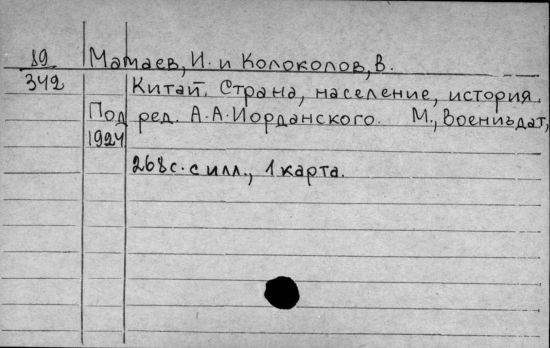 89 Мамаев, И. и Колоколов, В.
342 Китай. Страна, население, история.
Под ред. А.А.Иорданского. М., Воениздат,
1924
268с. с илл., 1 карта.